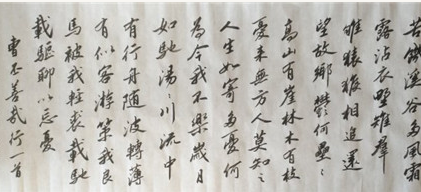 苦饑溪谷多風霜
露沾衣野雉群
雊猿猴相追還
望故鄉鬱何壘々
高山有崖林木有枝
憂來無方人莫知之
人生如寄多憂何
為今我不樂歲月
如馳湯々川流中
有行舟隨波轉薄
有似客游策我良
馬被我輕裘載馳
載驅聊以忘憂
曹丕善哉行一首